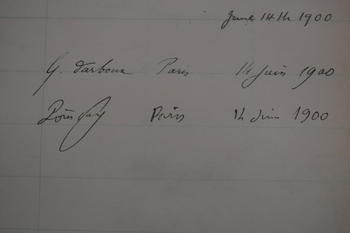 June 14th 1900
G. Darboux Paris 14 Juin 1900
Paris 14 Juin 1900